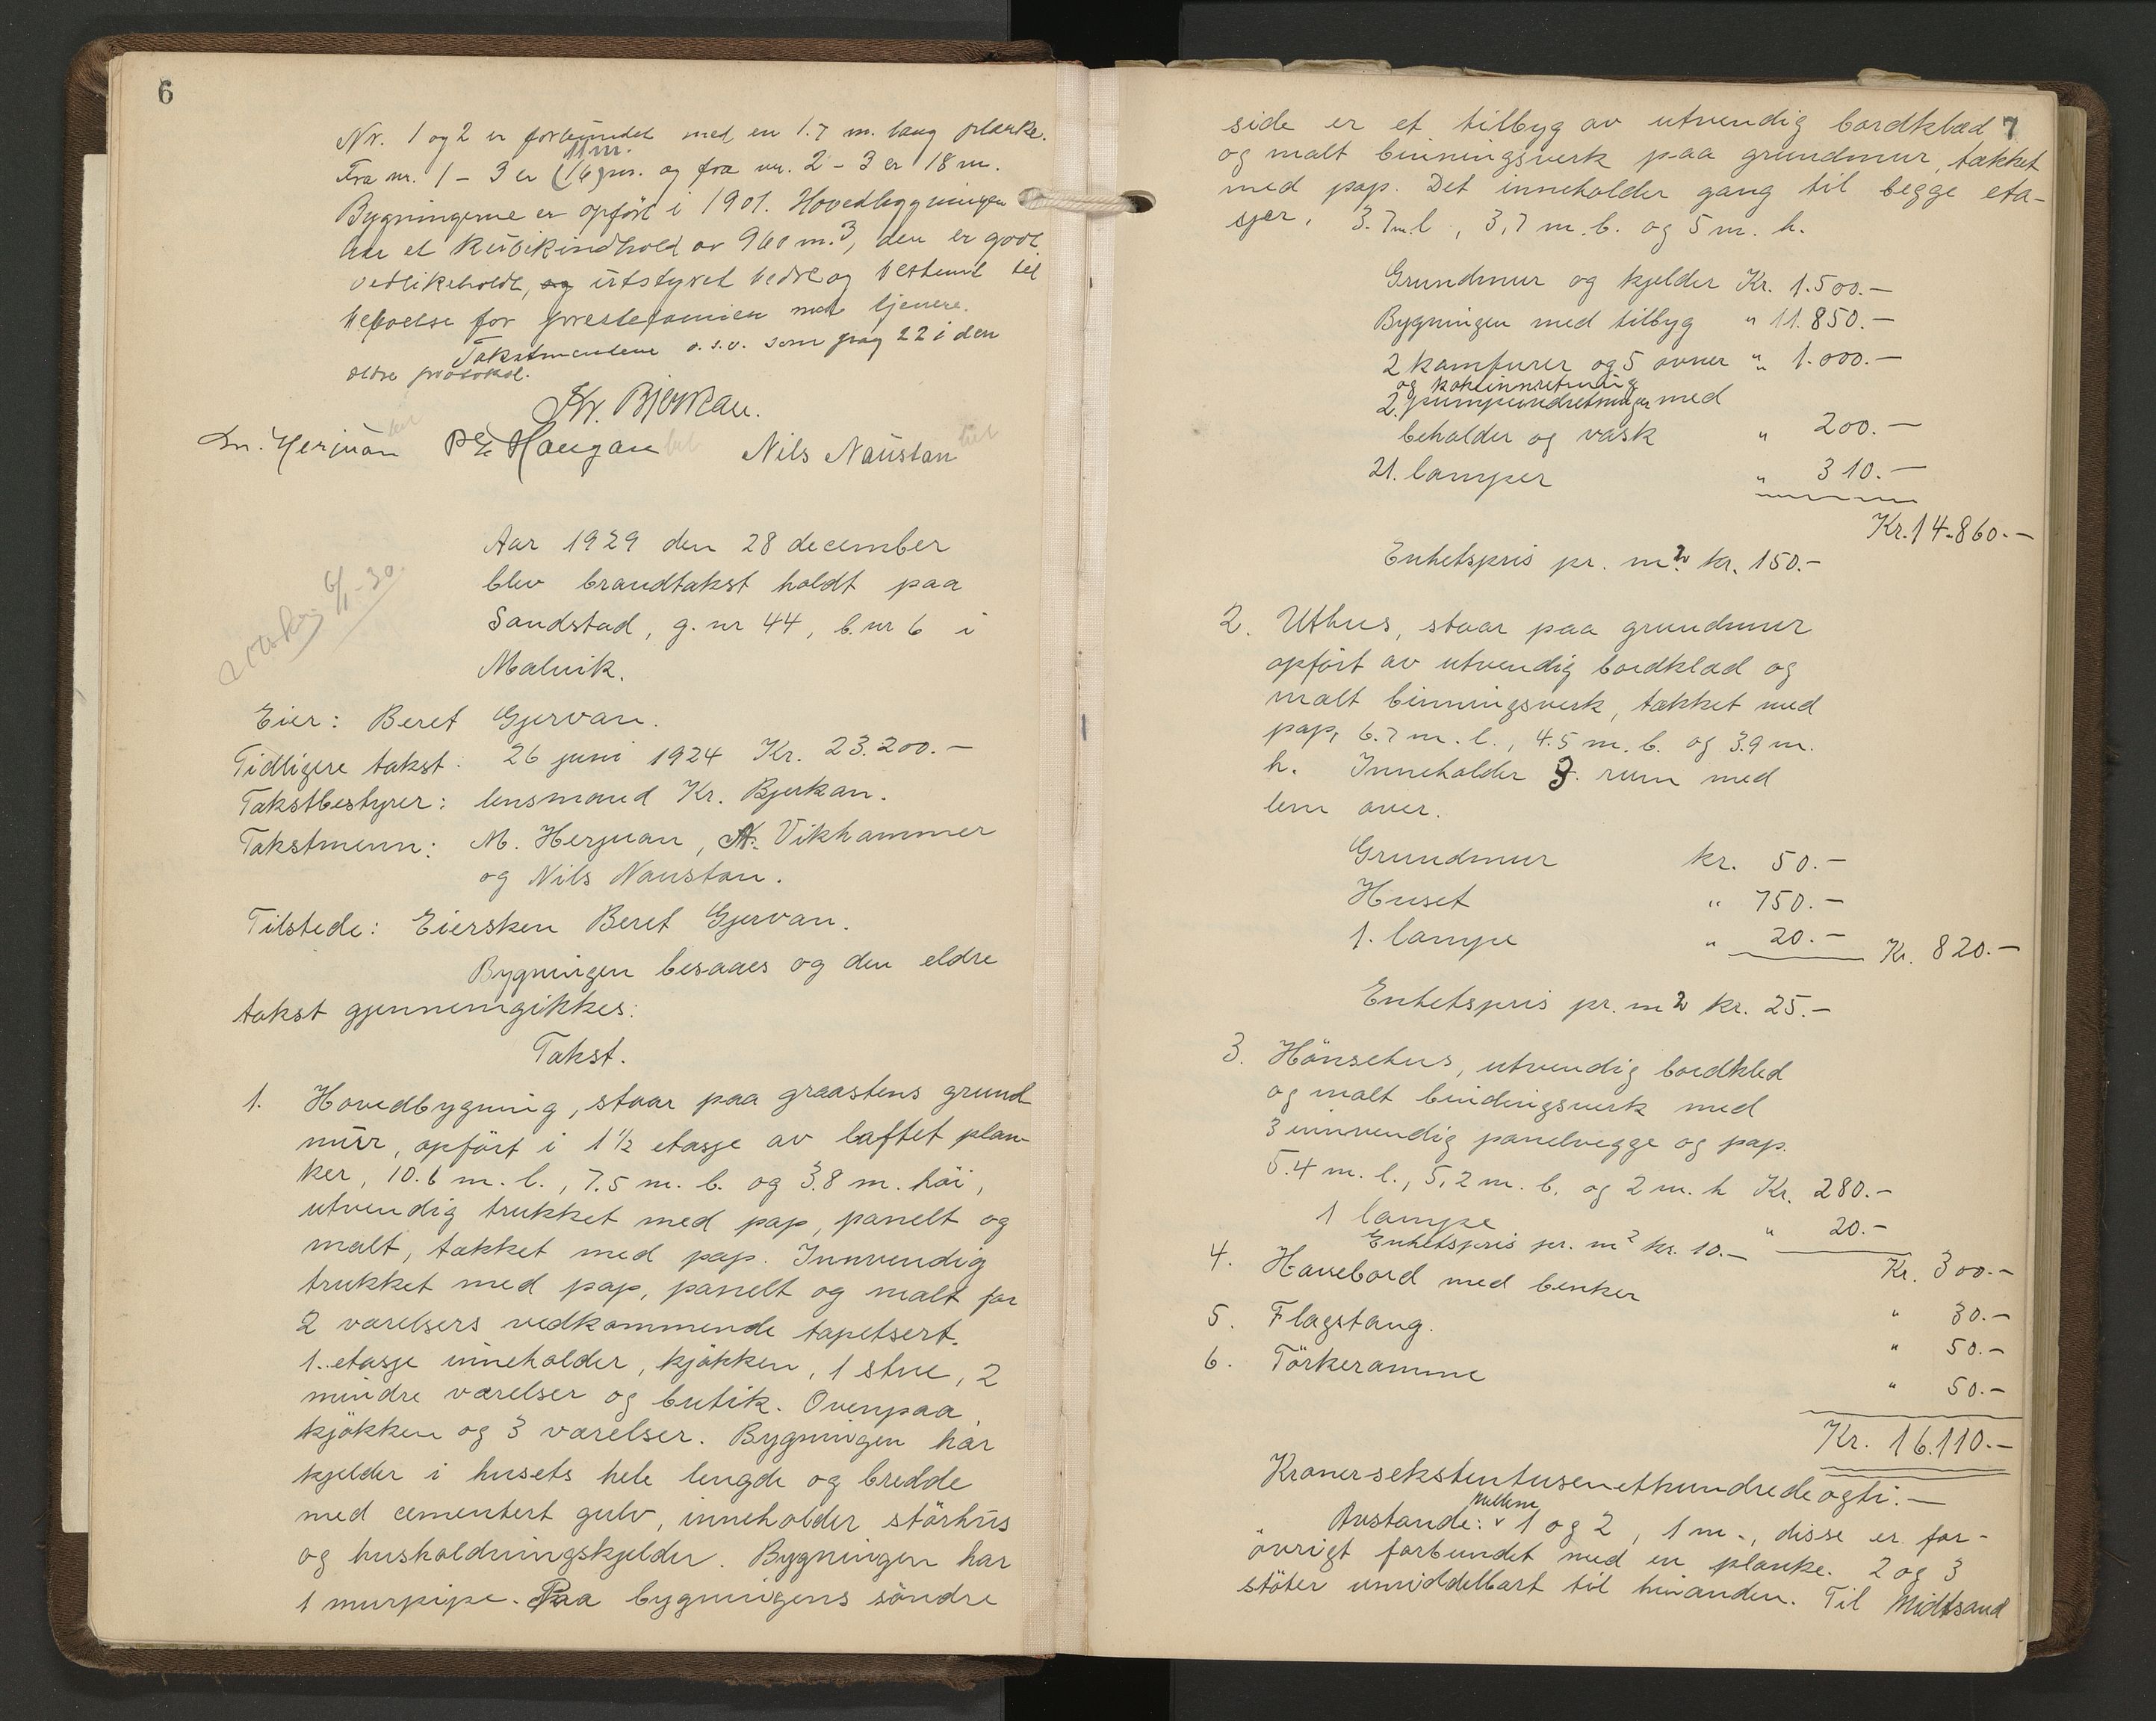 6
Nr. 1 og 2 er forbundet med en 1.7 m. lang planke.
11 m.
Fra nr. 1 - 3 er (16) m. og fra nr. 2 - 3 er 18 m.
Bygningerne er opført i 1901. Hovedbygningen
har et kubikindhold av 960 m.3, den er godt
vedlikeholdt, og utstyret bedre og bestemt til
beboelse for prestefamilien med tjenere.
Takstmendene o.s.v. som pag 22 i den
eldre protokol.
Kr. Bjerkan.
M. Herjuan P. Haugan Nils Naustan
6/1-30.
Aar 1929 den 28 december
blev brandtakst holdt paa
Sandstad, g. nr 44, b. nr 6 i
Malvik.
Eier: Beret Gjervan.
Tidligere takst: 26 juni 1924 Kr. 23.200.-
Takstbestyrer: lensmand Kr. Bjerkan.
Takstmenn: M. Herjuan, A. Vikhammer
og Nils Naustan.
Tilstede: Eiersken Beret Gjervan.
Bygningen besaaes og den eldre
takst gjennemgikkes:
Takst.
1. Hovedbygning, staar paa graastens grund
mur, opført i 1 1/2 etasje av laftet plan-
ker, 10.6 m. l., 7.5 m. b. og 3.8 m. höi,
utvendig trukket med pap, panelt og
malt, tækket med pap. Innvendig
trukket med pap, panelt og malt for
2 værelsers vedkommende tapetsert.
1. etasje inneholder, kjökken, 1 stue, 2
mindre værelser og butik. Ovenpaa,
kjökken og 3 værelser. Bygningen har
kjelder i husets hele lengde og bredde
med cementert gulv, inneholder störhus
og husholdningskjelder. Bygningen har
1 murpipe. Paa bygningens söndre
7
side er et tilbyg av utvendig bordklæd
og malt binningsverk paa grundmur, tækket
med pap. Det inneholder gang til begge eta-
sjer, 3.7 m. l, 3,7 m. b. og 5 m. h.
Grundmur og kjelder Kr. 1.500.-
Bygningen med tilbyg " 11.850.-
2 kamfurer og 5 ovner " 1.000.-
og kokeinnretning
2 pumpeindretninger med
beholder og vask " 200.-
21. lamper " 310.-
Kr. 14.860.-
Enhetspris pr. m2. kr. 150.-
2. Uthus, staar paa grundmur
opfört av utvendig bordklæd og
malt binningsverk, tækket med
pap, 6.7 m. l., 4.5 m. b. og 3.9 m.
h. Inneholder 3. rum med
lem over.
Grundmur kr. 50.-
Huset " 750.-
1. lampe " 20.- Kr. 820.-
Enhetspris pr. m2 kr. 25.-
3. Hönsehus, utvendig bordkled
og malt bindingsverk med
3 innvendig panelvegge og pap.
5.4 m. l., 5,2 m. b. og 2 m. h Kr. 280.-
1 lampe " 20.-
Enhetspris pr. m2 kr. 10.-
Kr. 300.-
4. Havebord med benker " 30.-
5. Flagstang. " 50.-
6. Törkeramme " 50.-
Kr. 16.110.-
Kroner sekstentusenethundredeogti.-
mellem
Avstande: v 1 og 2, 1 m., disse er for-
övrigt forbundet med en planke. 2 og 3
stöter umiddelbart til hinanden. Til Midtsand